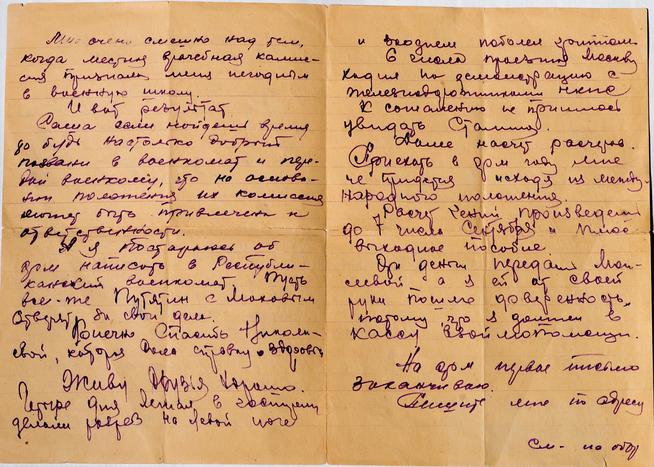 Мне очень смешно над тем,
когда местная врачебная комис-
сия признала меня негодным
в военную школу.
И вот результат
Саша если найдешь время
то будь настолько добрый
позвани в военкомат и пере-
дай военкому, что на основа-
нии положения их комиссия
может быть привлечена к
ответственности.
А я постараюсь об
этом написать в Республи-
канский военкомат. Пусть
все-же Путятин с Маховым
ответят за свои дела.
Николае-
вой, которая дала справку о здоровье
Живу друзья хорошо.
Четыре дня лежал в госпитале
делали разрез на левой ноге
и вообщем поболел
6 числа проезжая Москву
ходил на демонстрацию с
железнодорожниками
К сожалению не пришлось
увидать Сталина.
Далее насчет расчетов.
Приехать в этом году мне
не придется исходя из между-
народного положения.
Расчет произведен
до 7 числа Сентября и плюс
выходное пособие.
Эти деньги передай
а я ей от своей
руки пошлю доверенность,
потому что я должен в
кассу взаимопомощи.
На этом первое письмо
заканчиваю.
Пишите мне по адресу
См- на обор